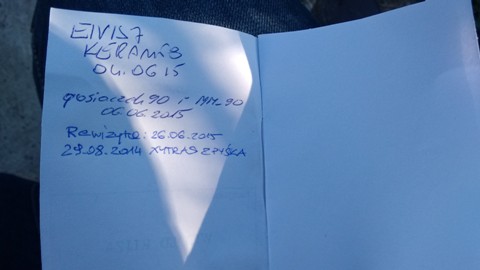 EIVIS7
KERAMIS
04.06 15
gosiaczek90 i MM-90
06.06.2015
Rewizyta: 26.06.2015
29.08.2014 XYTRAS ZPYŚKA